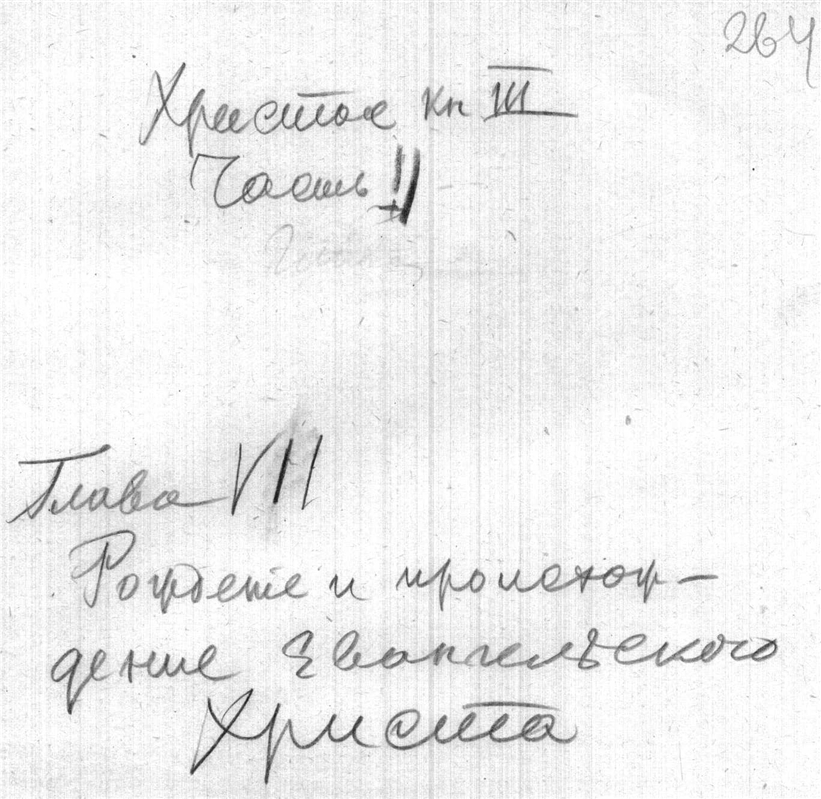 264
Христос кн III
Часть II
Глава VII
Рождение и происхож-
дение Евангельского
Христа